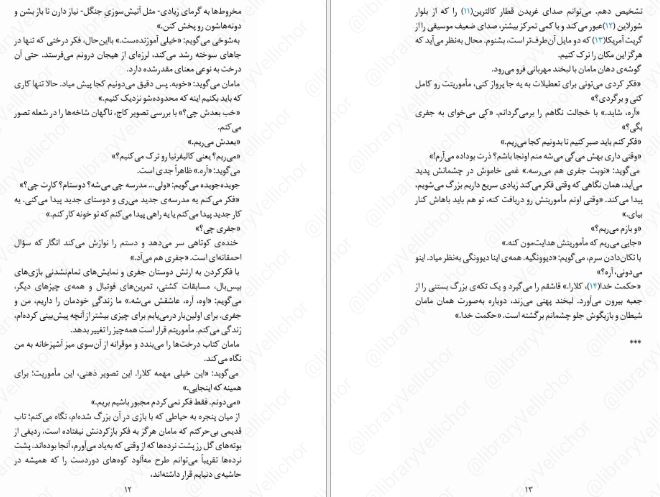 مخروط‌ها به گرمای زیادی- مثل آتیش‌سوزیِ جنگل- نیاز دارن تا باز بشن و
دونه‌هاشون رو پخش کنن.»
به‌شوخی می‌گویم: «خیلی آموزنده‌ست.» بااین‌حال، فکر درختی که تنها در
جاهای سوخته رشد می‌کند، لرزه‌ای از هیجان درونم می‌فرستد. حتی آن
درخت به نوعی معنای مقدرشده دارد.
مامان می‌گوید: «خوبه. پس دقیق می‌دونیم کجا پیش میاد. حالا تنها کاری
که باید بکنیم اینه که محدوده‌شو نزدیک کنیم.»
«خب بعدش چی؟» با بررسی تصویر کاج، ناگهان شاخه‌ها را در شعله تصور
می‌کنم.
«بعدش می‌ریم.»
«می‌ریم؟ یعنی کالیفرنیا رو ترک می‌کنیم؟»
می‌گوید: «آره.» ظاهراً جدی است.
جویده‌جویده می‌گویم: «ولی... مدرسه چی می‌شه؟ دوستام؟ کارت چی؟»
«فکر می‌کنم به مدرسه‌ی جدید می‌ری و دوستای جدید پیدا می‌کنی. یه
کار جدید پیدا می‌کنم یا یه راهی پیدا می‌کنم که تو خونه کار کنم.»
«جفری چی؟»
خنده‌ی کوتاهی سر می‌دهد و دستم را نوازش می‌کند انگار که سؤال
احمقانه‌ای است. «جفری هم می‌آد.»
با فکرکردن به ارتش دوستان جفری و نمایش‌های تمام‌نشدنی بازی‌های
بیس‌بال، مسابقات کشتی، تمرین‌های فوتبال و همه‌ی چیزهای دیگر،
می‌گویم: «اوه، آره، عاشقش می‌شه.» ما زندگی خودمان را داریم، من و
جفری. برای اولین‌بار درمی‌یابم برای چیزی بیشتر از آنچه پیش‌بینی کرده‌ام،
زندگی می‌کنم. مأموریتم قرار است همه‌چیز را تغییر بدهد.
مامان کتاب درخت‌ها را می‌بندد و موقرانه از آن‌سوی میز آشپزخانه به من
نگاه می‌کند.
می‌گوید: «این خیلی مهمه کلارا. این تصویر ذهنی، این مأموریت؛ برای
همینه که اینجایی.»
«می‌دونم. فقط فکر نمی‌کردم مجبور باشیم بریم.»
از میان پنجره به حیاطی که با بازی در آن بزرگ شده‌ام، نگاه می‌کنم؛ تاب
قدیمی بی‌حرکتم که مامان هرگز به فکر بازکردنش نیفتاده است، ردیفی از
بوته‌های گل رز پشت نرده‌ها که از وقتی که به‌یاد می‌آورم، آنجا بوده‌اند. پشت
نرده‌ها تقریباً می‌توانم طرح مه‌آلود کوه‌های دوردست را که همیشه در
حاشیه‌ی دنیایم قرار داشته‌اند،
۱۲
تشخیص دهم. می‌توانم صدای غریدن قطار کالترین(۱۱) را که از بلوار
شورلاین (۱۲)عبور می‌کند و با کمی تمرکز بیشتر، صدای ضعیف موسیقی را از
گریت آمریکا(۱۳) که دو مایل آن‌طرف‌تر است، بشنوم. محال به‌نظر می‌آید که
هرگز این مکان را ترک کنیم.
گوشه‌ی دهان مامان با لبخند مهربانی فرو می‌رود.
«فکر کردی می‌تونی برای تعطیلات به یه جا پرواز کنی، مأموریتت رو کامل
کنی و برگردی؟»
«آره، شاید.» با خجالت نگاهم را برمی‌گردانم. «کِی می‌خوای به جفری
بگی؟»
«فکر کنم باید صبر کنیم تا بدونیم کجا می‌ریم.»
«وقتی داری بهش می‌گی می‌شه منم اونجا باشم؟ ذرت بوداده می‌آرم!»
می‌گوید: «نوبت جفری هم می‌رسه.» غمی خاموش در چشمانش پدید
می‌آید، همان نگاهی که وقتی فکر می‌کند زیادی سریع داریم بزرگ می‌شویم،
پیدا می‌کند. «وقتی اونم مأموریتش رو دریافت کنه، تو هم باید باهاش کنار
بیای.»
«و بازم می‌ریم؟»
«جایی می‌ریم که مأموریتش هدایت‌مون کنه.»
با تکان‌دادن سرم، می‌گویم: «دیوونگیه. همه‌ی اینا دیوونگی به‌نظر میاد. اینو
می‌دونی، آره؟»
«حکمت خدا(۱۴)، کلارا.» قاشقم را می‌گیرد و یک تکه‌ی بزرگ بستنی را از
جعبه بیرون می‌آورد. لبخند پهنی می‌زند، دوباره به‌صورت همان مامان
شیطان و بازیگوش جلو چشمانم برگشته است. «حکمت خدا.»
***
۱۳
@libraryVellichor